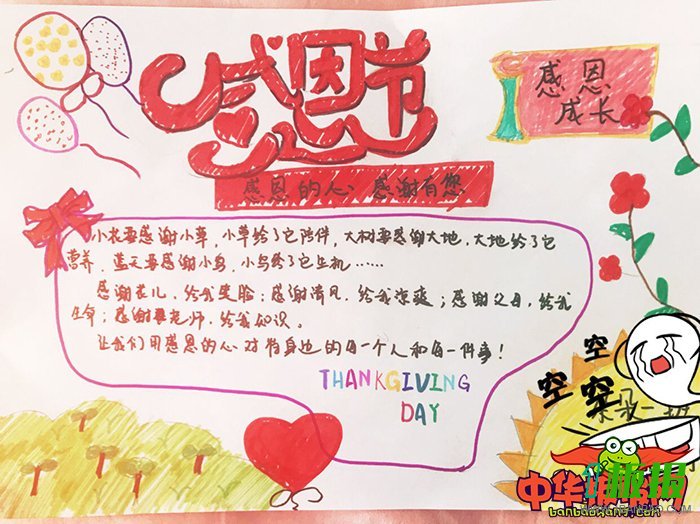 感恩节
感恩的心 感谢有您
感恩
成长
小花要感谢小草，小草给了它陪伴，大树要感谢大地，大地给了它
营养，蓝天要感谢小鸟，小鸟给了它生机……
感谢花儿，给我笑脸；感谢清风，给我凉爽；感谢父母，给我
生命；感谢老师，给我知识。
让我们用感恩的心对待身边的每一个人和每一件事！
THANKGIVING
DAY
空
空
空
中华
趣报
banbaowang.com